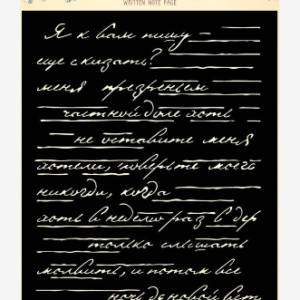 WRITTEN NOTE PAGE
Я к вам пишу
еще сказать?
меня презреньем
частной доле асть
не оставите меня
астели, поверьте моей
никогда, когда
асть в неделю раз в дер
только слышать
молвить, и потом все
ночь до новой вст